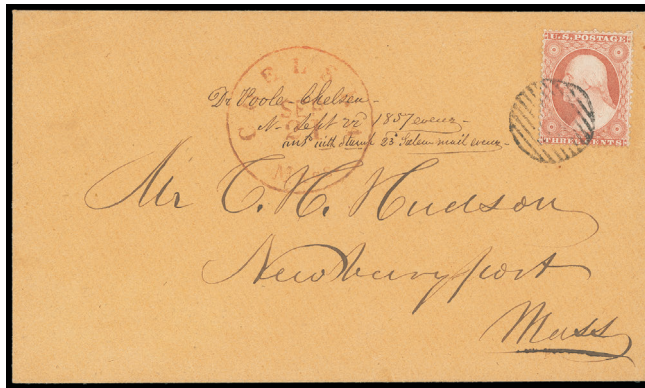 U.S. POSTAGE
THREE CENTS
CHELSEA
Dr Poole - Chelsea -
Sept 22 1857
with stamp 23 Salem mail
Mr C. H. Hudson
Newburyport
Mass